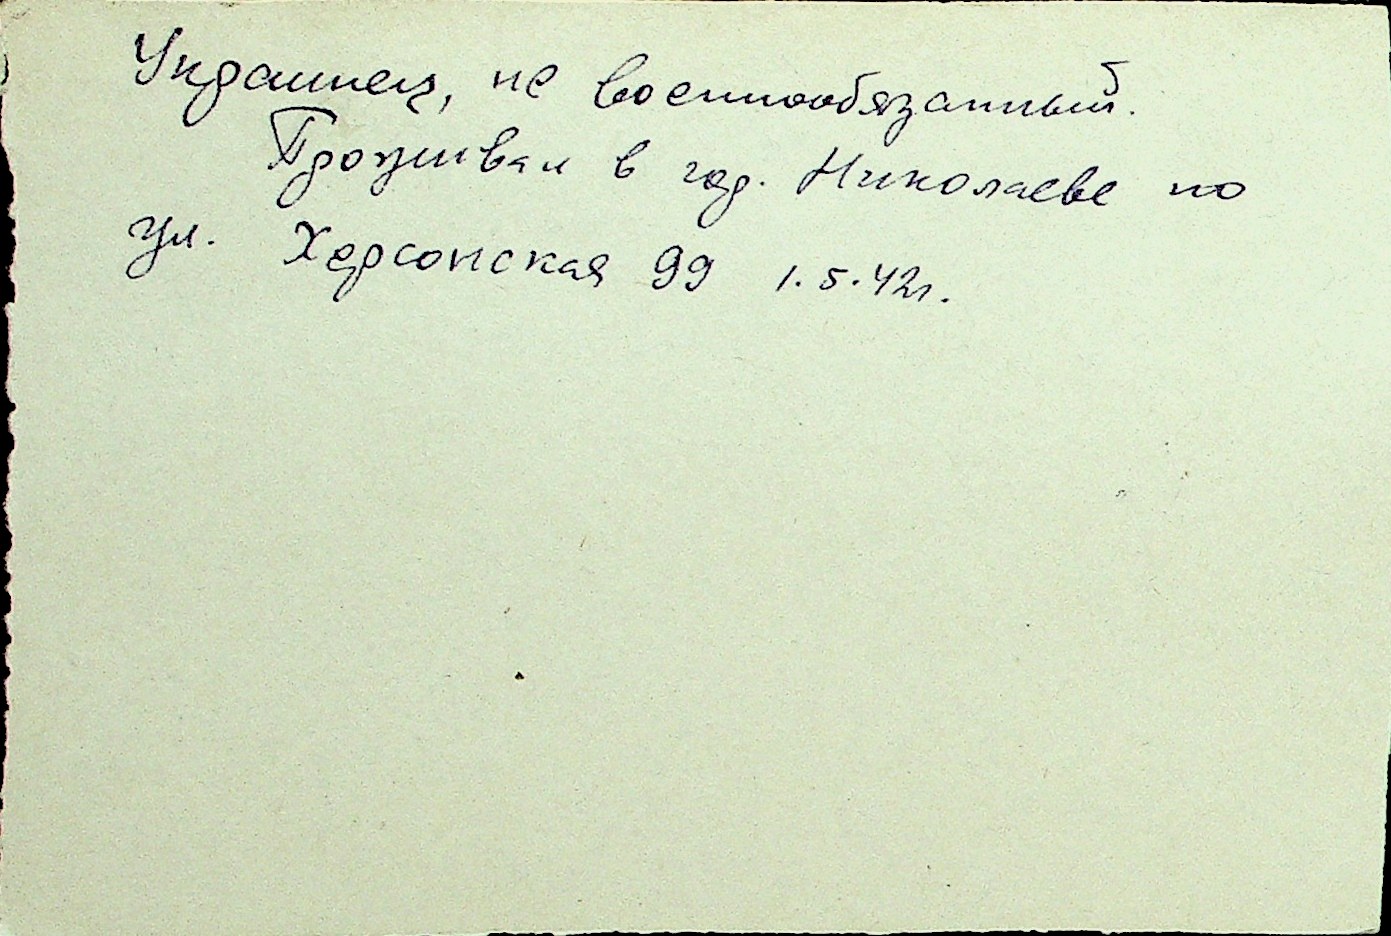 Украинец, не военнообязанный.
Проживал в гор. Николаеве по
ул. Херсонская 99 1.5.42г.